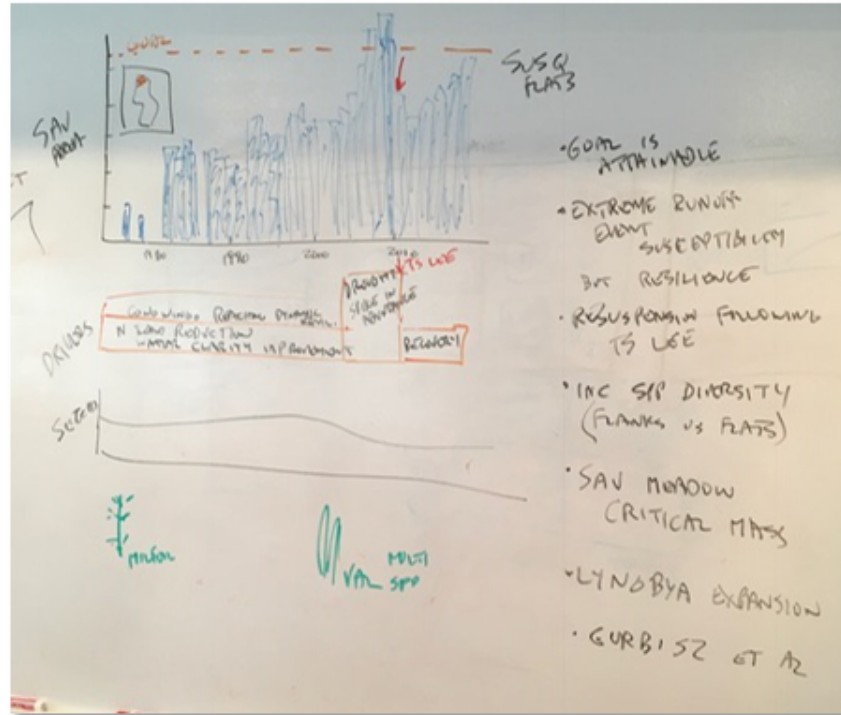 GOAL
SUSQ
FLATS
SAV
1980
1990
2000
2010
TS LEE
DRIVERS
N LOAD REDUCTION
WATER CLARITY IMPROVEMENT
RECOVERY
MILFOIL
VAL
MULTI
SPP
• GOAL IS
ATTAINABLE
• EXTREME RUNOFF
EVENT
SUSCEPTIBILITY
BUT RESILIENCE
• RESUSPENSION FOLLOWING
TS LEE
• INC SPP DIVERSITY
(FLANKS VS FLATS)
• SAV MEADOW
CRITICAL MASS
• LYNGBYA EXPANSION
• GURBISZ ET AL